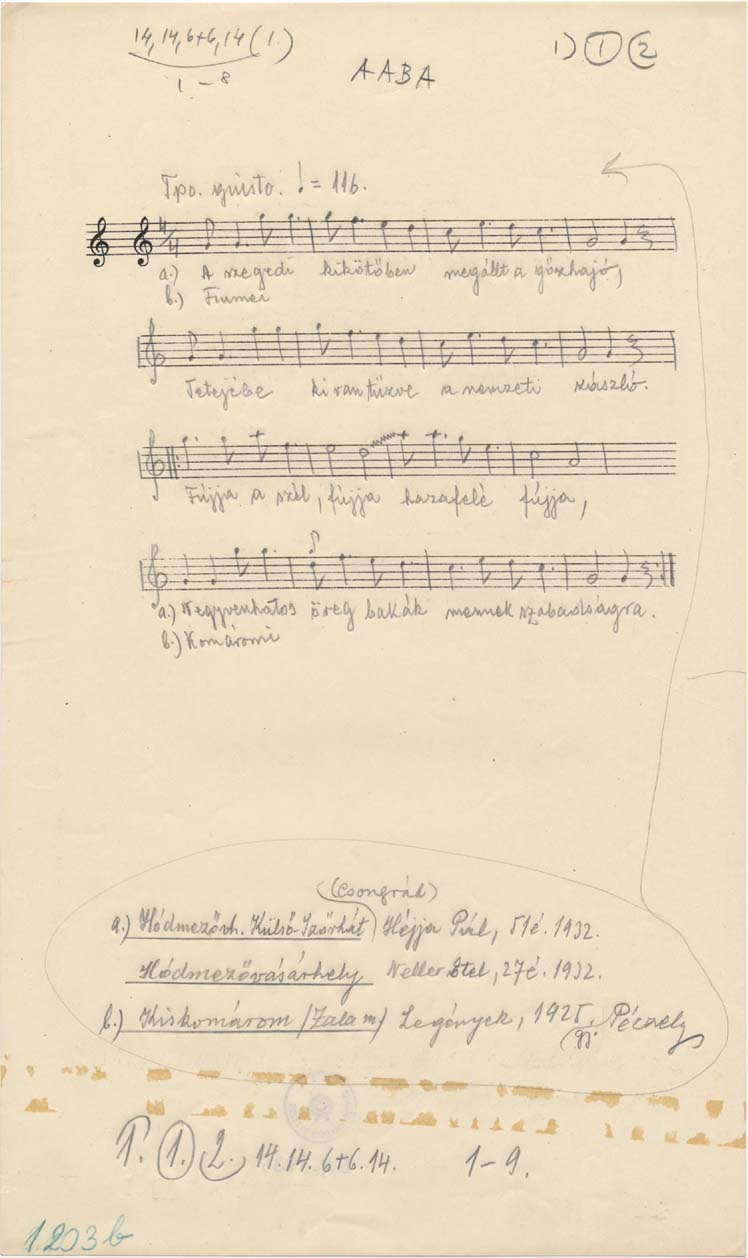 14, 14, 6+6, 14 (1.)
1 – 8
AABA
1) 1 2
Tpo. giusto. ♩= 116.
4/4
a.) A szegedi kikötőben megállt a gőzhajó,
b.) Fiumei
Tetejébe ki van tűzve a nemzeti zászló.
Fújja a szél, fújja hazafelé fújja,
a.) Negyvenhatos öreg bakák mennek szabadságra.
b.) Komáromi
(Csongrád)
a.) Hódmezővh. Külső-Szőrhát Héjja Pál, 51é. 1932.
Hódmezővásárhely Neller Etel, 27é. 1932.
b.) Kiskomárom (Zala m) Legények, 1925. Péczely
gy.
1. 2. 14. 14. 6+6. 14. 1–9.
1203b